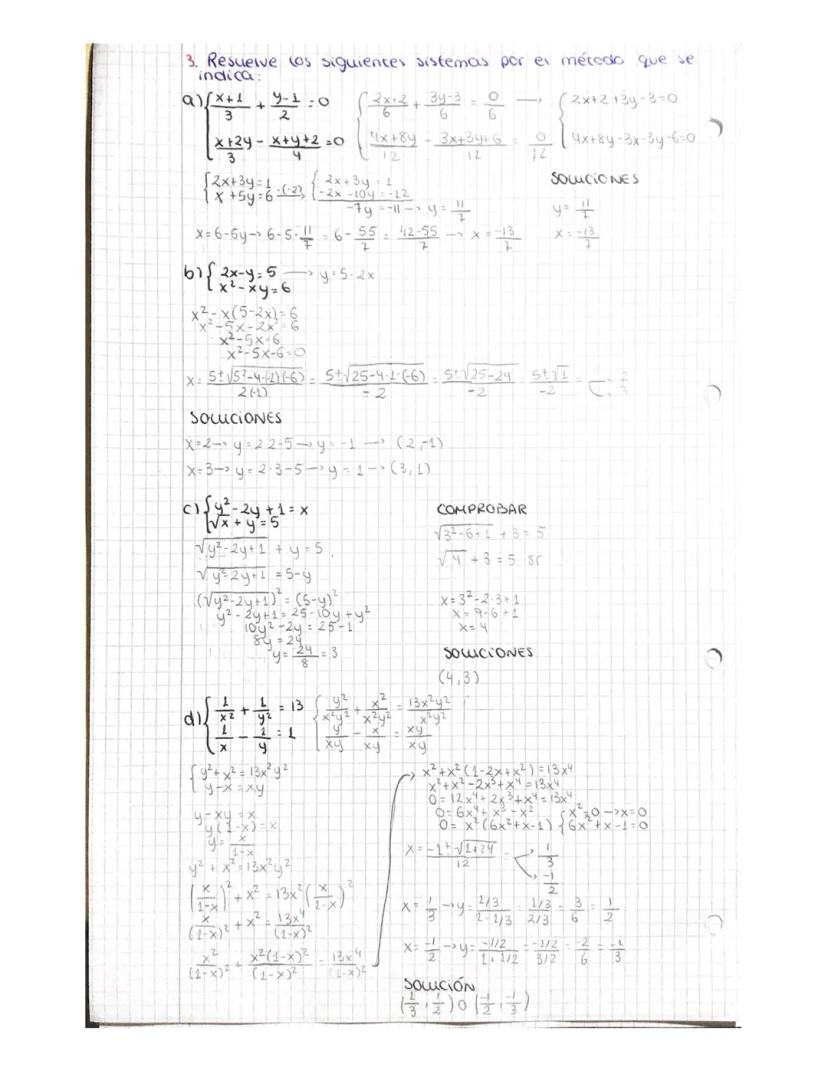 3. Resuelve los siguientes sistemas por el método que se
indica:
a) { (x+1)/3 + (y-1)/2 = 0 { (2x+2)/6 + (3y-3)/6 = 0/6 → { 2x+2+3y-3=0
(x+2y)/3 - (x+y+2)/4 = 0 (4x+8y)/12 - (3x+3y+6)/12 = 0/12 4x+8y-3x-3y-6=0
{ 2x+3y=1 { 2x+3y=1 SOLUCIONES
x+5y=6 ·(-2)→ -2x-10y=-12
-7y=-11 → y=11/7 y=11/7
x=6-5y → 6-5·11/7 = 6-55/7 = (42-55)/7 → x=-13/7 x=-13/7
b) { 2x-y=5 → y=5-2x
x²-xy=6
x²-x(5-2x)=6
x²-5x-2x²=6
x²-5x-6
x²-5x-6=0
x= (5±√(5²-4·(-1)(-6)))/(2(-1)) = (5±√(25-4·1·(-6)))/(-2) = (5±√(25-24))/(-2) = (5±√1)/(-2) = 2 3
SOLUCIONES
x=2 → y=2·2-5 → y=-1 → (2,-1)
x=3 → y=2·3-5 → y=1 → (3,1)
c) { y²-2y+1=x
√x+y=5
√(y²-2y+1) + y=5
√(y²-2y+1) = 5-y
(√(y²-2y+1))² = (5-y)²
y²-2y+1=25-10y+y²
10y²-2y=25-1
8y=24
y=24/8=3
COMPROBAR
√(3²-6+1) + 3 = 5
√4 + 3 = 5 sí
x=3²-2·3+1
x=9-6+1
x=4
SOLUCIONES
(4,3)
d) { 1/x² + 1/y² = 13 { y²/x²y² + x²/x²y² = 13x²y²/x²y²
1/x - 1/y = 1 y/xy - x/xy = xy/xy
{ y²+x²=13x²y²
y-x=xy
y-xy=x
y(1-x)=x
y=x/(1-x)
y²+x²=13x²y²
(x/(1-x))² + x² = 13x²(x/(1-x))²
x/(1-x)² + x² = 13x⁴/(1-x)²
x²/(1-x)² + x²(1-x)²/(1-x)² = 13x⁴/(1-x)²
x²+x²(1-2x+x²)=13x⁴
x²+x²-2x³+x⁴=13x⁴
0=12x⁴+2x³+x⁴=13x⁴
0=6x⁴+x³-x²
0=x²(6x²+x-1) { x²=0 → x=0
6x²+x-1=0
x= (-1±√(1+24))/12 = 1/3
-1/2
x=1/3 → y= (1/3)/(1-1/3) = (1/3)/(2/3) = 3/6 = 1/2
x=-1/2 → y= (-1/2)/(1+1/2) = (-1/2)/(3/2) = -2/6 = -1/3
SOLUCIÓN
(1/3, 1/2) o (-1/2, -1/3)